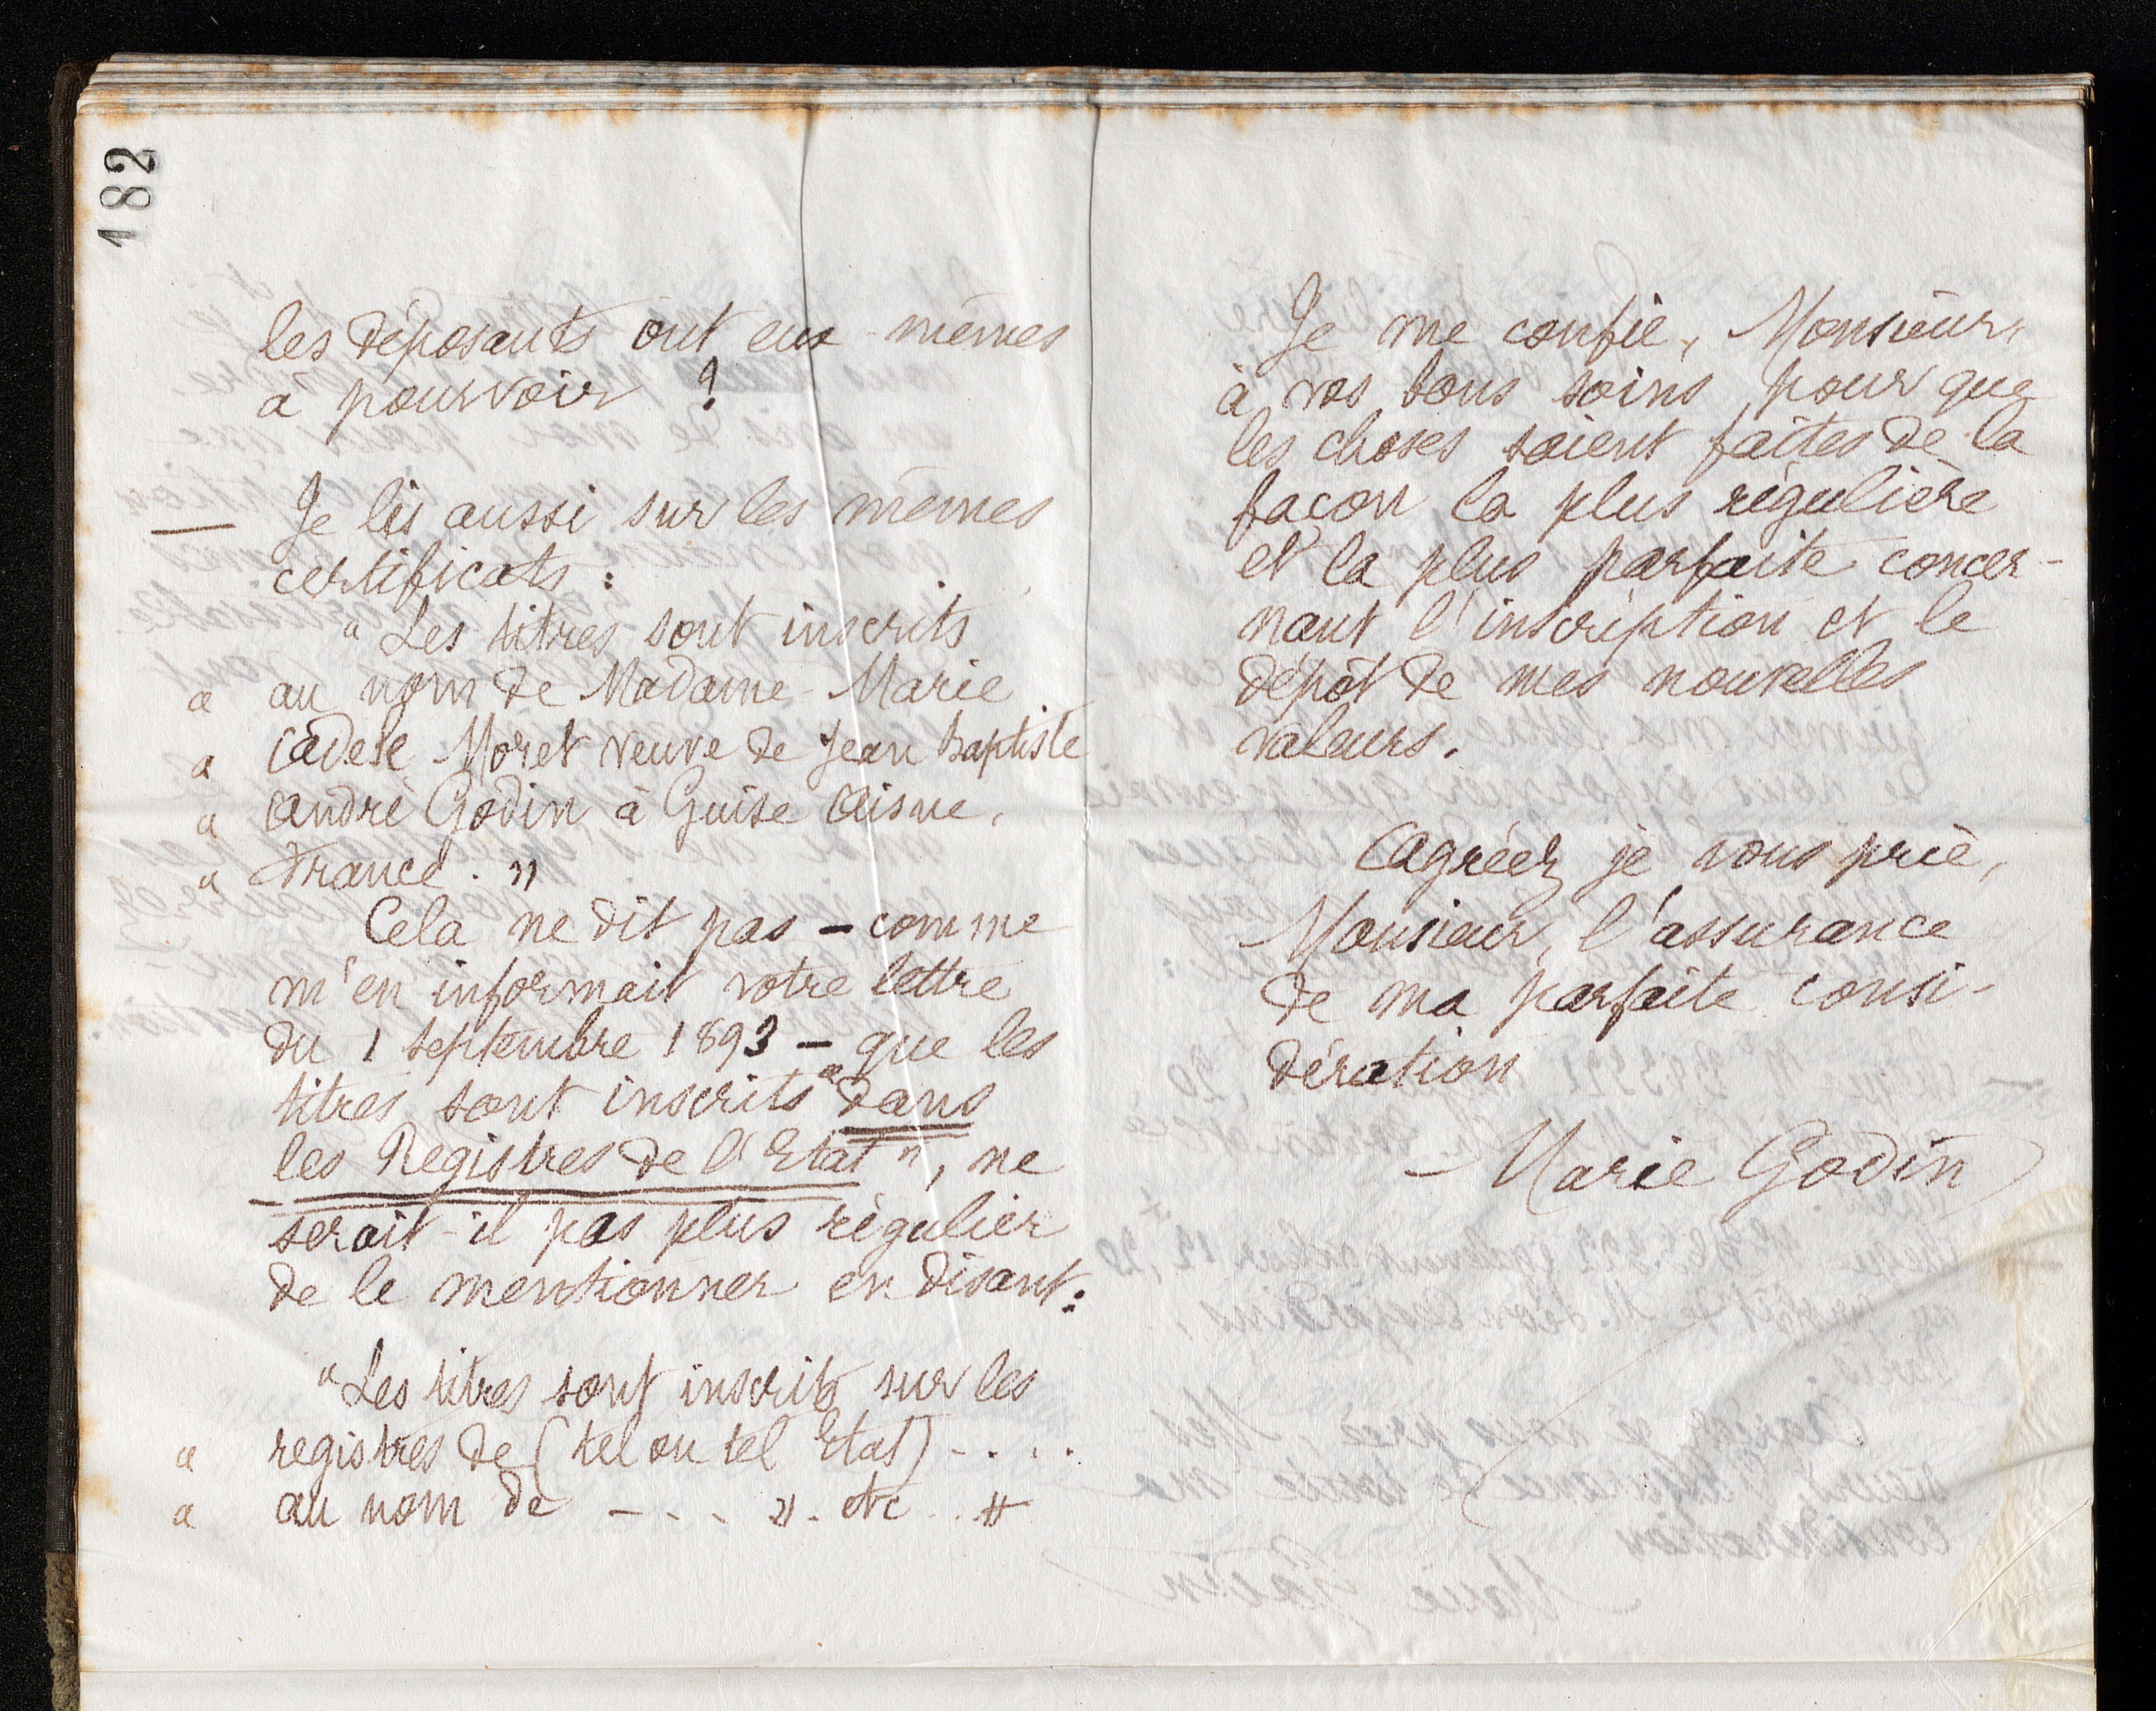 182
les déposants ont eux-mêmes
à pourvoir ?
— Je lis aussi sur les mêmes
certificats :
" Les titres sont inscrits
" au nom de Madame Marie
" Adèle Moret veuve de Jean Baptiste
" André Godin à Guise Aisne,
" France. "
Cela ne dit pas — comme
m'en informait votre lettre
du 1 septembre 1893 — que les
titres sont inscrits " dans
les Registres de l'Etat ", ne
serait-il pas plus régulier
de le mentionner en disant :
" Les titres sont inscrits sur les
" registres de (tel ou tel Etat) - . . .
" au nom de - . . . ". etc . . "
Je me confie, Monsieur,
à vos bons soins pour que
les choses soient faites de la
façon la plus régulière
et la plus parfaite concer-
nant l'inscription et le
dépôt de mes nouvelles
valeurs.
Agréez je vous prie,
Monsieur, l'assurance
de ma parfaite consi-
dération
Marie Godin